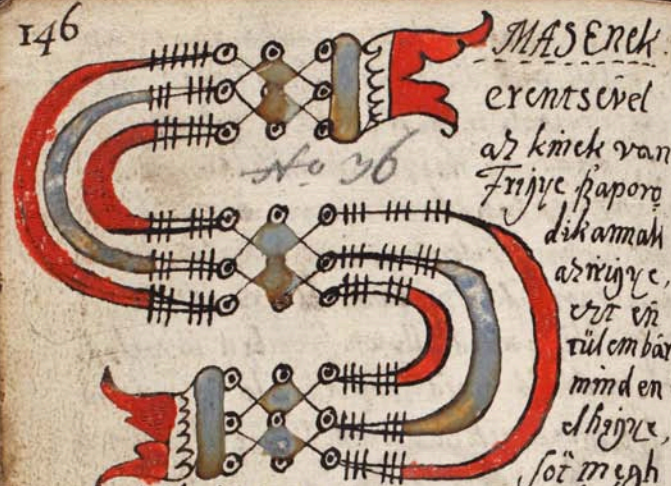 146
MASEnek
erentsével
az kinek van
Frigye ßaporo
dik annak
az irigye,
ezt én
tülem bár
minden
elhigye,
sőt megh
No 36